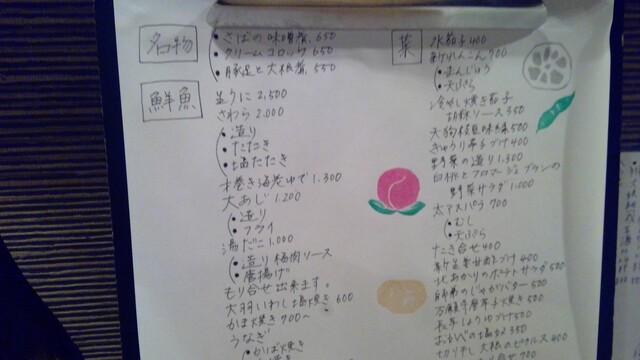 名物
・さばの味噌煮 650
・クリームコロッケ 650
・豚足と大根煮 550
鮮魚
並うに 2,500
さわら 2,000
・造り
・たたき
・塩たたき
木巻き海老ゆで 1,300
大あじ 1,200
・造り
・フライ
湯だこ 1,000
・造り 梅肉ソース
・唐揚げ
もり合せ出来ます。
大羽いわし塩焼き 600
かま焼き 700〜
うなぎ
・かば焼き
菜
水茄子 400
新れんこん 700
・まんじゅう
・天ぷら
冷やし焼き茄子
胡麻ソース 350
天狗枝豆味噌 500
きゅうり辛子づけ 400
野菜の造り 1,300
白桃とフロマージュブランの
野菜サラダ 1,000
太アスパラ 700
・むし
・天ぷら
たき合せ 400
新生姜甘酢づけ 400
北あかりのポテトサラダ 500
師弟のじゃがバター 500
万願寺唐辛子焼き 500
長芋しょうゆづけ 500
おかひじきの塩 350
切り干し大根のピクルス 400